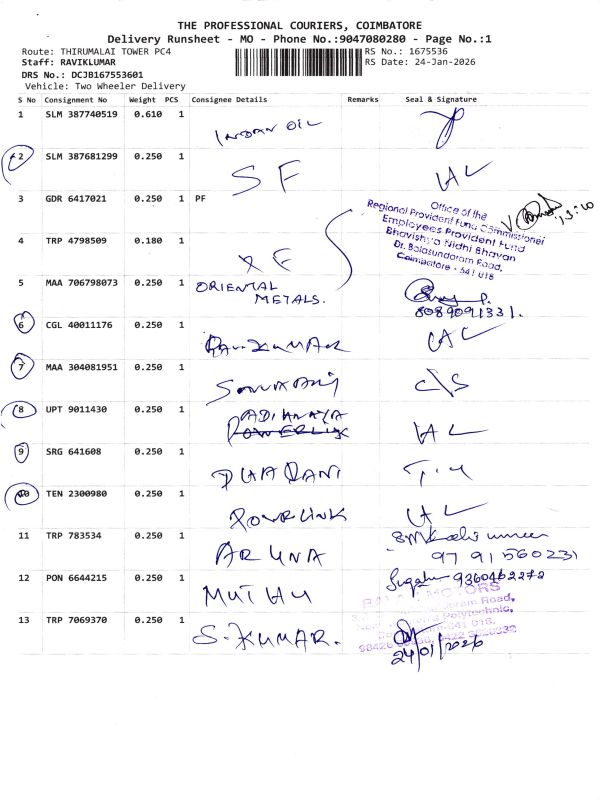 THE PROFESSIONAL COURIERS, COIMBATORE
Delivery Runsheet - MO - Phone No.:9047080280 - Page No.:1
Route: THIRUMALAI TOWER PC4
RS No.: 1675536
Staff: RAVIKLUMAR
RS Date: 24-Jan-2026
DRS No.: DCJB167553601
Vehicle: Two Wheeler Delivery
S No Consignment No Weight PCS Consignee Details Remarks Seal & Signature
1 SLM 387740519 0.610 1 INDIAN OIL
2 SLM 387681299 0.250 1 SF
3 GDR 6417021 0.250 1 PF
Office of the
Regional Provident Fund Commissioner
Employees Provident Fund
Bhavishya Nidhi Bhavan
Dr. Balasundaram Road,
Coimbatore - 641 018
4 TRP 4798509 0.180 1
5 MAA 706798073 0.250 1 ORIENTAL
METALS.
8089091331.
6 CGL 40011176 0.250 1
7 MAA 304081951 0.250 1 C/S
8 UPT 9011430 0.250 1
9 SRG 641608 0.250 1
10 TEN 2300980 0.250 1
11 TRP 783534 0.250 1 ARUNA
97 91560231
12 PON 6644215 0.250 1 MUTHU 9360462272
13 TRP 7069370 0.250 1 S. KUMAR.
24/01/2026